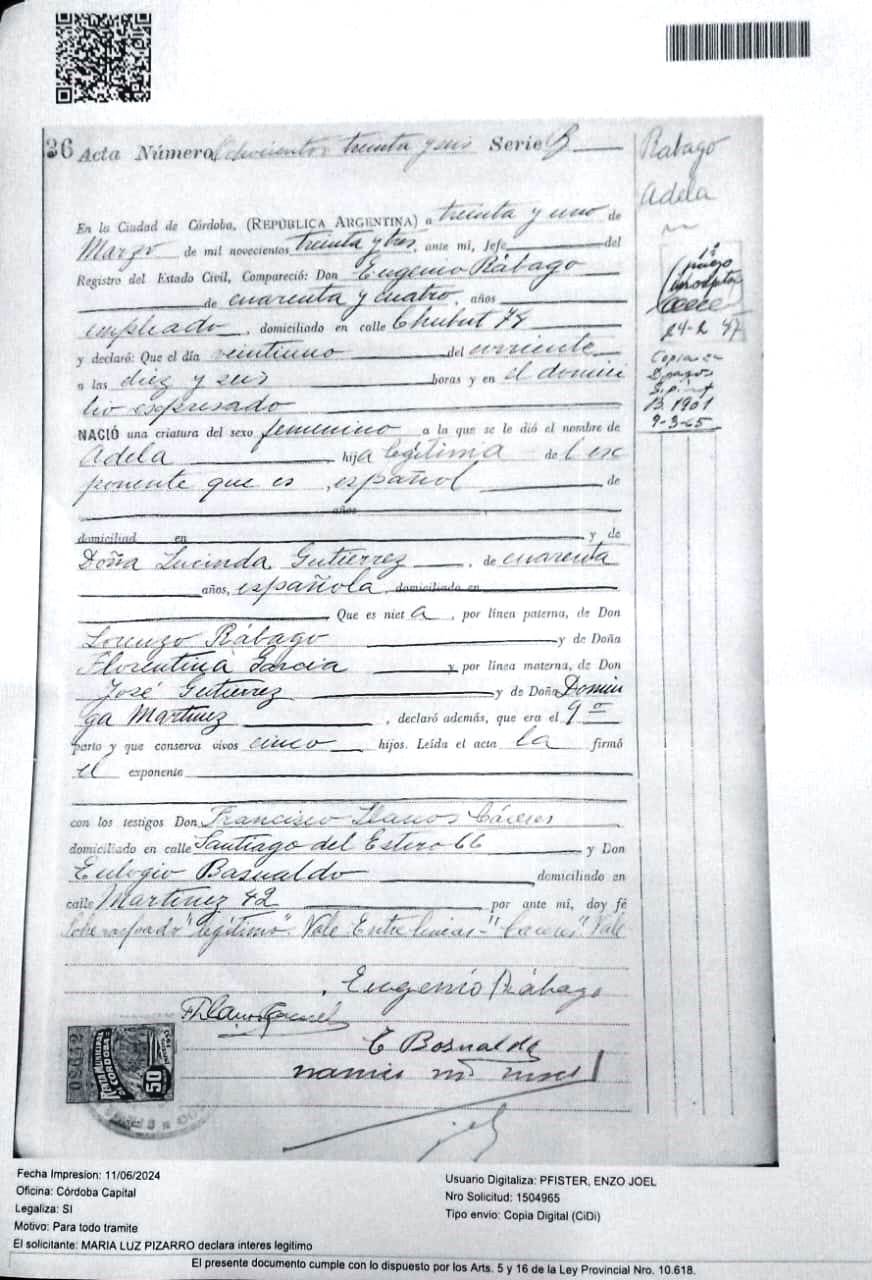 36 Acta Número doscientos treinta y seis Serie B
Rábago
Adela
En la Ciudad de Córdoba, (REPÚBLICA ARGENTINA) a treinta y uno de
Marzo de mil novecientos treinta y tres, ante mi, Jefe del
Registro del Estado Civil, Compareció: Don Eugenio Rábago
de cuarenta y cuatro, años
empleado, domiciliado en calle Chubut 74
y declaró: Que el día veintiuno del corriente
a las diez y seis horas y en el domici
lio expresado
NACIÓ una criatura del sexo femenino a la que se le dió el nombre de
Adela hija legítima de l ex
ponente que es, español de
años
domiciliad en y de
Doña Lucinda Gutiérrez, de cuarenta
años, española domiciliado en
Que es niet a, por línea paterna, de Don
Lorenzo Rábago y de Doña
Florentina García y por línea materna, de Don
José Gutiérrez y de Doña Domin
ga Martínez, declaró además, que era el 9º
parto y que conserva vivos cinco hijos. Leída el acta la firmó
el exponente
con los testigos Don Francisco Llanos Cáceres
domiciliado en calle Santiago del Estero 66 y Don
Eulogio Basualdo domiciliado en
calle Martínez 42 por ante mi, doy fé
"legítimo". Vale. Entre líneas - "Cáceres". Vale
24-2 47
Copia en
B. 1901
9-3-65
Eugenio Rábago
E Basualdo
RENTA MUNICIPAL
CÓRDOBA
50
Fecha Impresion: 11/06/2024
Oficina: Córdoba Capital
Legaliza: SI
Motivo: Para todo tramite
El solicitante: MARIA LUZ PIZARRO declara interes legitimo
Usuario Digitaliza: PFISTER, ENZO JOEL
Nro Solicitud: 1504965
Tipo envio: Copia Digital (CiDi)
El presente documento cumple con lo dispuesto por los Arts. 5 y 16 de la Ley Provincial Nro. 10.618.